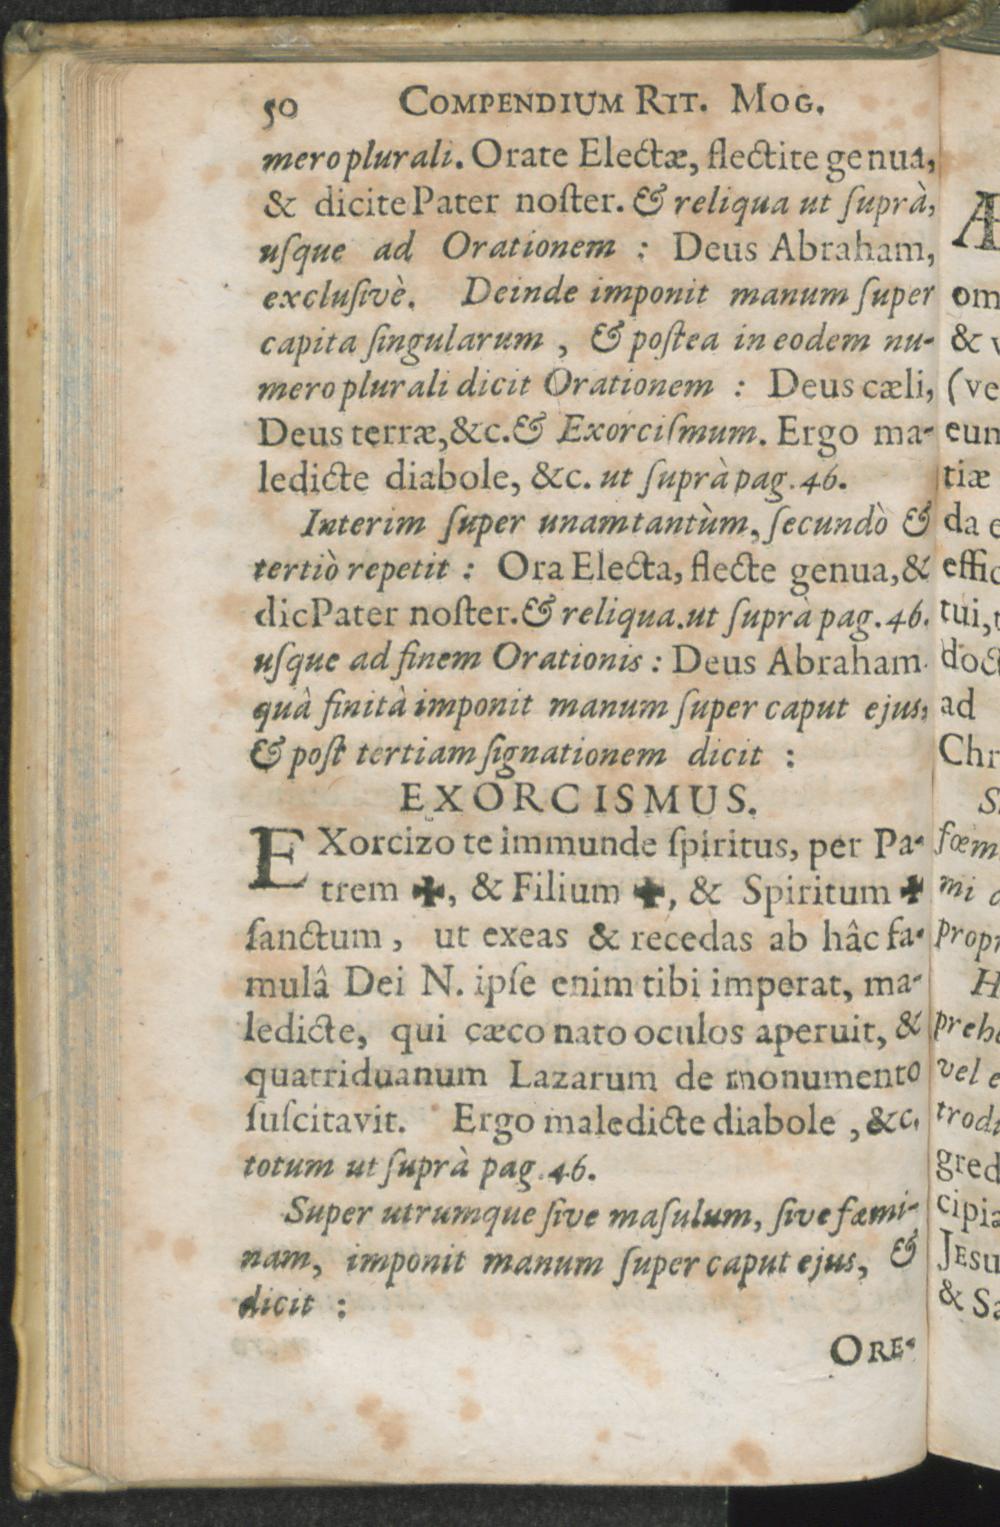 50 COMPENDIUM RIT. MOG.
mero plurali. Orate Electæ, flectite genua,
& dicite Pater noſter. & reliqua ut ſuprà,
uſque ad Orationem : Deus Abraham,
excluſivè. Deinde imponit manum ſuper
capita ſingularum , & poſtea in eodem nu-
mero plurali dicit Orationem : Deus cæli,
Deus terræ, &c. & Exorciſmum. Ergo ma-
ledicte diabole, &c. ut ſuprà pag. 46.
Interim ſuper unam tantùm, ſecundò &
tertiò repetit : Ora Electa, flecte genua, &
dic Pater noſter. & reliqua. ut ſuprà pag. 46.
uſque ad finem Orationis : Deus Abraham.
quâ finitâ imponit manum ſuper caput ejus,
& poſt tertiam ſignationem dicit :
EXORCISMUS.
EXorcizo te immunde ſpiritus, per Pa-
trem ✠, & Filium ✠, & Spiritum ✠
ſanctum , ut exeas & recedas ab hâc fa-
mulâ Dei N. ipſe enim tibi imperat, ma-
ledicte, qui cæco nato oculos aperuit, &
quatriduanum Lazarum de monumento
ſuſcitavit. Ergo maledicte diabole , &c.
totum ut ſuprà pag. 46.
Super utrumque ſive maſulum, ſive fæmi-
nam, imponit manum ſuper caput ejus, &
dicit :
ORE-
Æ
om
& v
(ve
eun
tiæ
da e
effic
tui,
doct
ad
Chr
S
fœm
mi
propr
H
preh
vel e
trodu
gred
cipia
JESU
& Sa